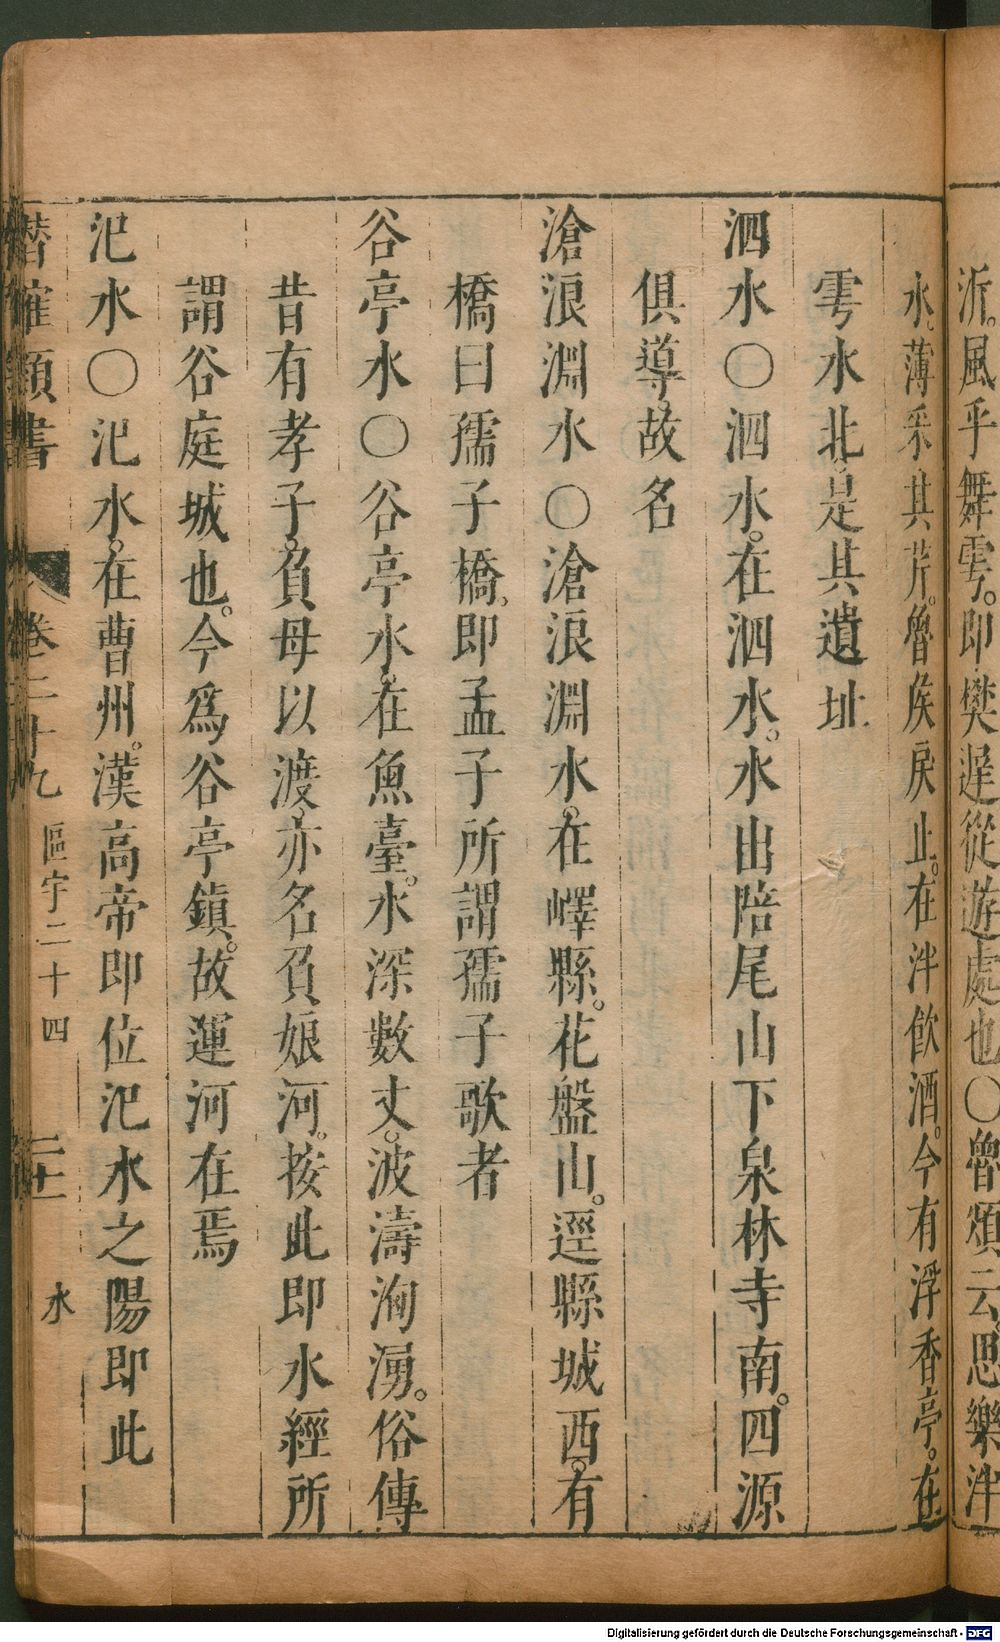 沂。風乎舞雩。即樊遲從遊處也〇魯頌云。思樂泮
水。薄采其芹。魯侯戾止。在泮飲酒。今有浮香亭。在
雩水北。是其遺址
泗水〇泗水。在泗水。水出陪尾山下泉林寺南。四源
俱導。故名
滄浪淵水〇滄浪淵水。在嶧縣。花盤山。逕縣城西。有
橋曰孺子橋。即孟子所謂孺子歌者
谷亭水〇谷亭水。在魚臺。水深數丈。波濤洶湧。俗傳
昔有孝子。負母以渡。亦名負娘河。按此即水經所
謂谷庭城也。今為谷亭鎮。故運河在焉
氾水〇氾水。在曹州。漢高帝即位氾水之陽即此
潛確類書 卷二十九 區宇二十四 二十一 水
Digitalisierung gefördert durch die Deutsche Forschungsgemeinschaft - DFG